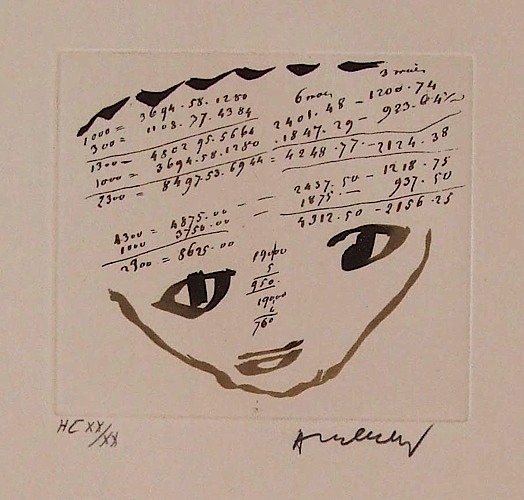 3 mois
1000 = 3694.58.1280 6 mois
300 = 1108.37.4384 2401.48 — 1200.74
1300 = 4802.95.5664 1847.29 — 923.64½
1000 = 3694.58.1280 4248.77 — 2124.38
2300 = 8497.53.6944
2437.50 — 1218.75
4875.00 — 1875 — 937.50
1000 3750.00 — 4312.50 — 2156.25
2300 = 8625.00
5
950.
760
HC XX/XX